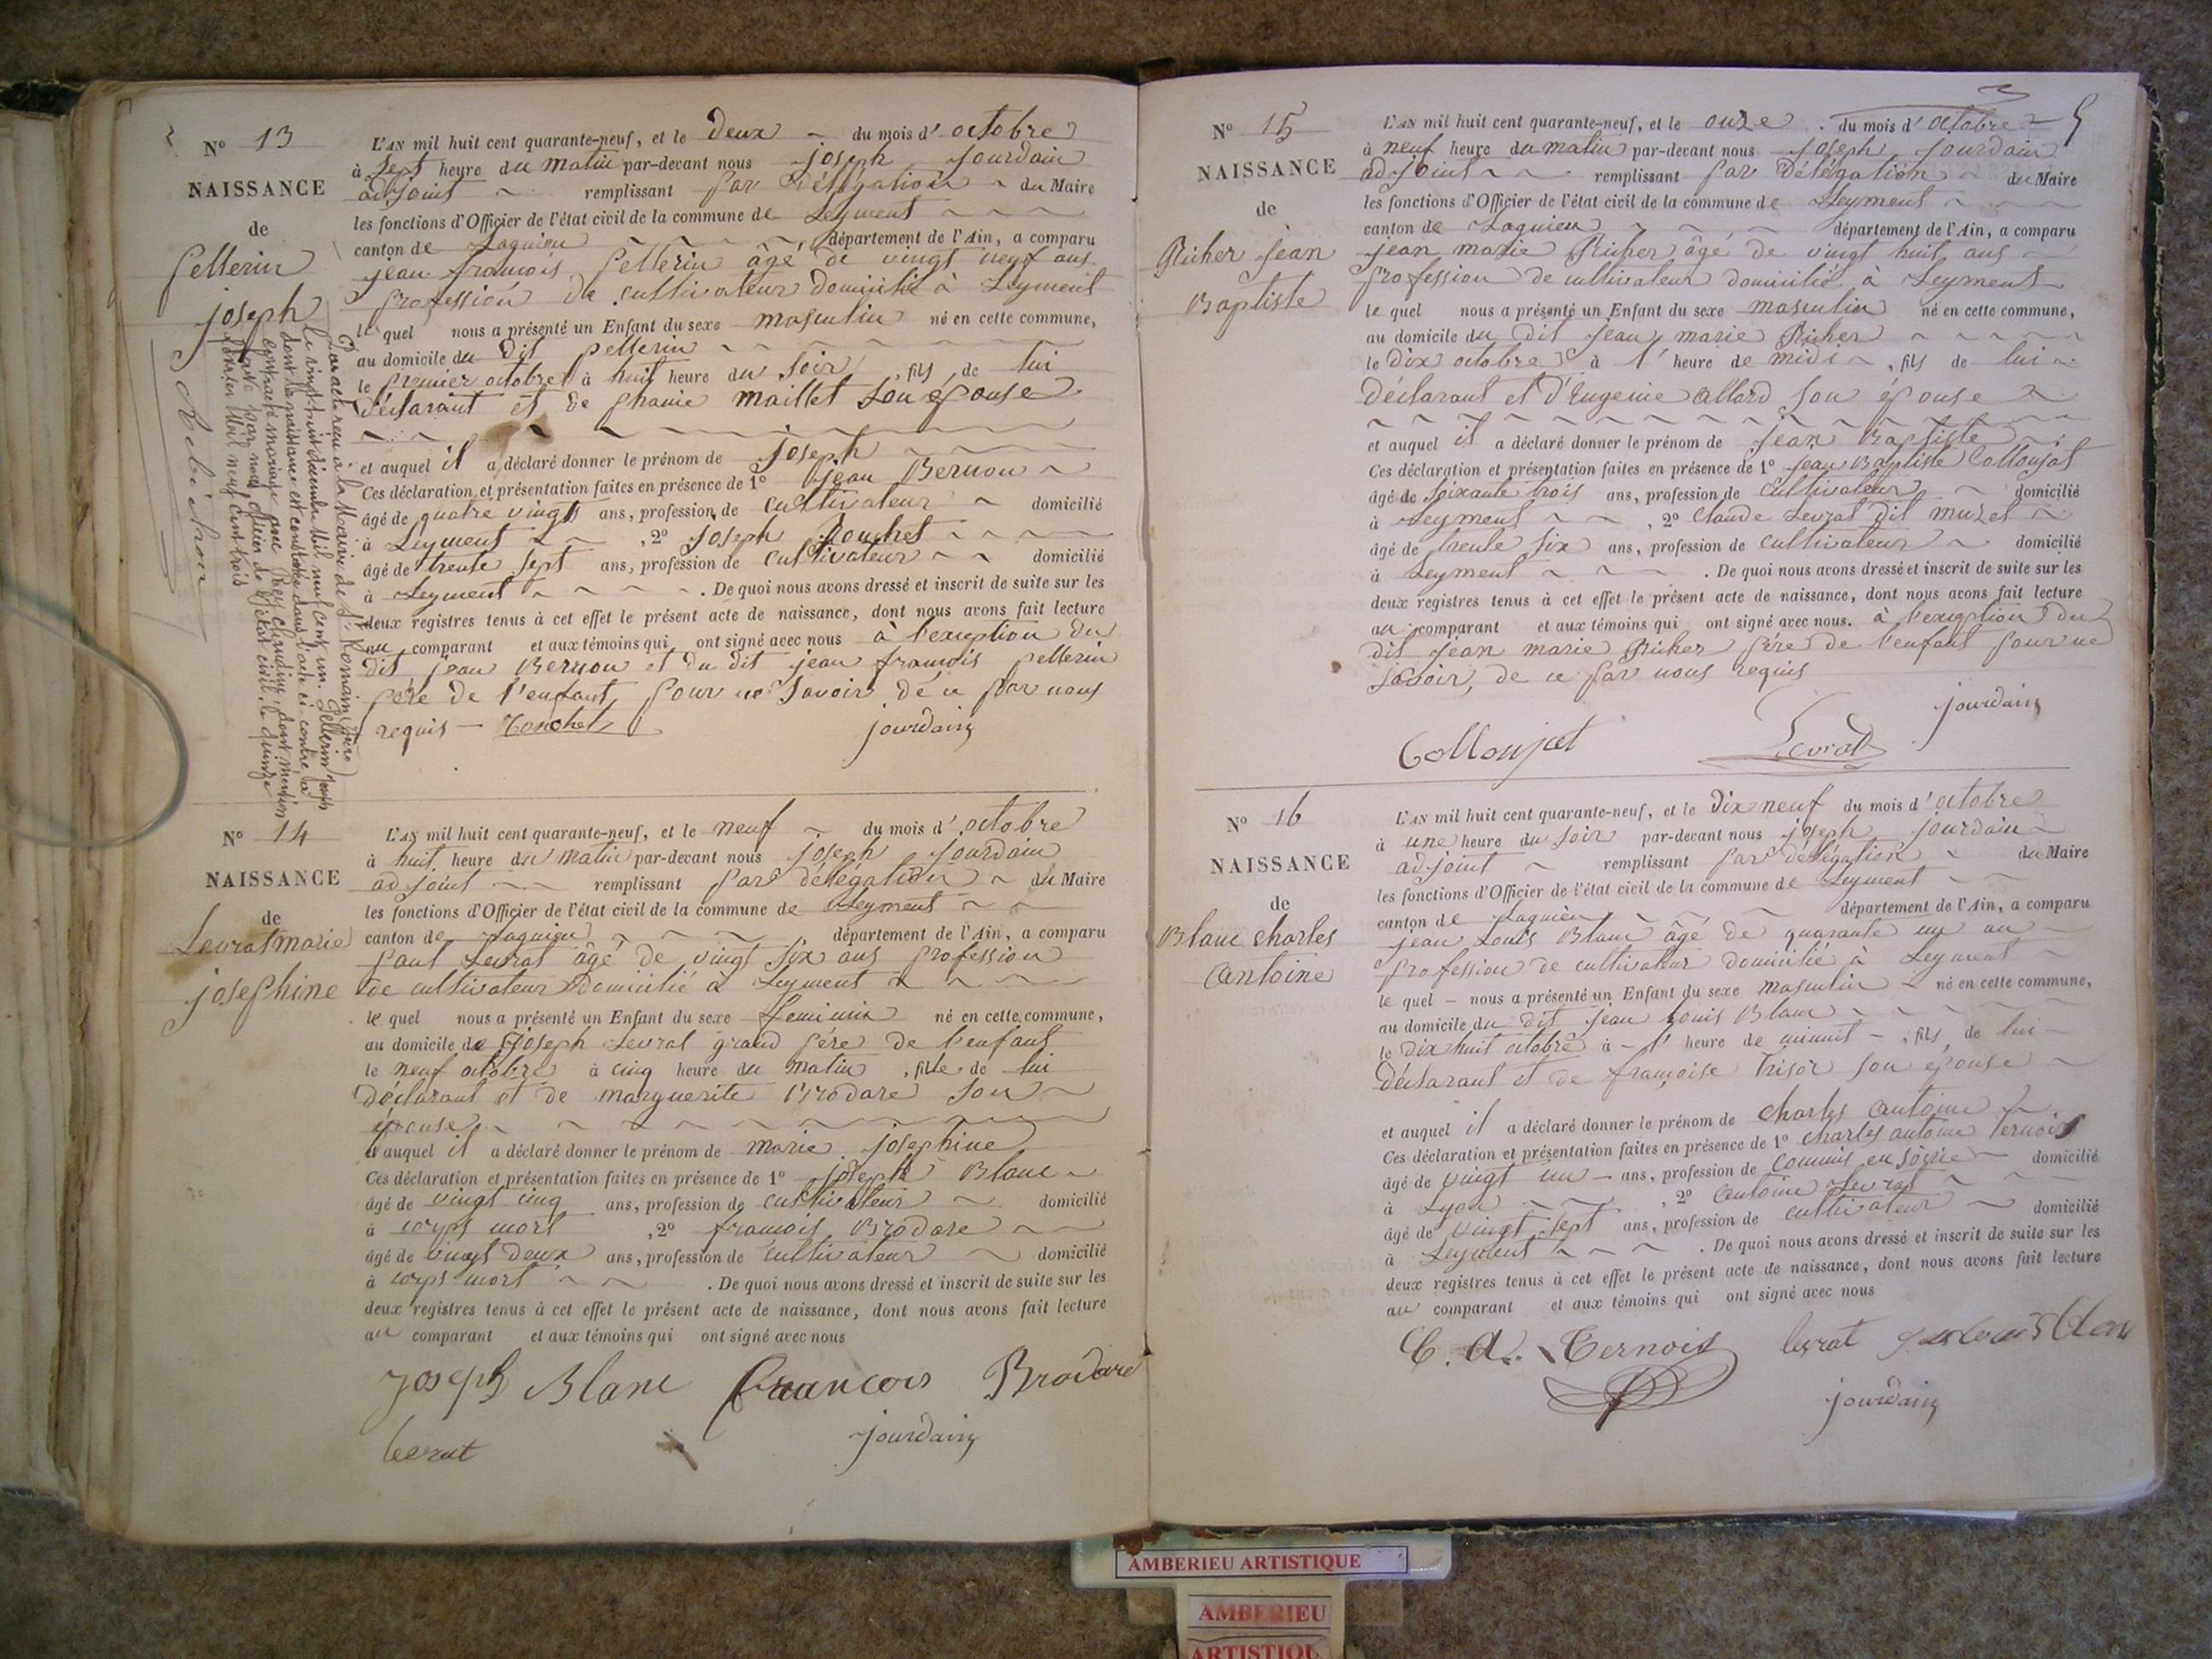 N° 13
NAISSANCE
de
Pellerin
joseph
L'AN mil huit cent quarante-neuf, et le deux du mois d'octobre
à sept heure du matin par-devant nous joseph jourdain
adjoint remplissant par délégation du Maire
les fonctions d'Officier de l'état civil de la commune de Leyment
canton de Lagnieu département de l'Ain, a comparu
jean francois Pellerin âgé de vingt neuf ans
profession de cultivateur domicilié à Leyment
le quel nous a présenté un Enfant du sexe masculin né en cette commune,
au domicile du dit pellerin
le premier octobre à huit heure du soir, fils de lui
déclarant et de phanie maillet son épouse
et auquel il a déclaré donner le prénom de joseph
Ces déclaration et présentation faites en présence de 1° jean Bernou
âgé de quatre vingts ans, profession de cultivateur domicilié
à Leyment, 2° joseph
âgé de trente sept ans, profession de cultivateur domicilié
à Leyment. De quoi nous avons dressé et inscrit de suite sur les
deux registres tenus à cet effet le présent acte de naissance, dont nous avons fait lecture
au comparant et aux témoins qui ont signé avec nous à l'exeption du
dit jean Bernou et du dit jean francois pellerin
père de l'enfant, pour ne savoir de ce par nous
requis
jourdain
Par acte reçu à la Mairie de St Romain
le vingt huit décembre Mil neuf cent un. Pellerin joseph
dont la naissance est constatée dans l'acte ci contre a
contracté mariage avec Rey claudine, dont mention
par nous officier de l'état civil le quinze
Mil neuf cent trois
N° 14
NAISSANCE
de
Levrat marie
josephine
L'AN mil huit cent quarante-neuf, et le neuf du mois d'octobre
à huit heure du matin par-devant nous joseph jourdain
adjoint remplissant par délégation du Maire
les fonctions d'Officier de l'état civil de la commune de Leyment
canton de Lagnieu département de l'Ain, a comparu
paul Levrat âgé de vingt six ans profession
de cultivateur domicilié à Leyment
le quel nous a présenté un Enfant du sexe feminin né en cette commune,
au domicile de joseph Levrat grand père de l'enfant
le neuf octobre à cinq heure du matin, fille de lui
déclarant et de marguerite Brodare son
épouse
et auquel il a déclaré donner le prénom de marie josephine
Ces déclaration et présentation faites en présence de 1° joseph Blanc
âgé de vingt cinq ans, profession de cultivateur domicilié
à corps mort, 2° francois Brodare
âgé de vingt deux ans, profession de cultivateur domicilié
à corps mort. De quoi nous avons dressé et inscrit de suite sur les
deux registres tenus à cet effet le présent acte de naissance, dont nous avons fait lecture
au comparant et aux témoins qui ont signé avec nous
Joseph Blanc francois Brodare
Levrat jourdain
N° 15
NAISSANCE
de
Richer jean
Baptiste
L'AN mil huit cent quarante-neuf, et le onze du mois d'octobre
à neuf heure du matin par-devant nous joseph jourdain
adjoint remplissant par délégation du Maire
les fonctions d'Officier de l'état civil de la commune de Leyment
canton de Lagnieu département de l'Ain, a comparu
jean marie Richer âgé de vingt huit ans
profession de cultivateur domicilié à Leyment
le quel nous a présenté un Enfant du sexe masculin né en cette commune,
au domicile du dit jean marie Richer
le dix octobre à l'heure de midi, fils de lui
déclarant et d'Eugenie allard son épouse
et auquel il a déclaré donner le prénom de jean Baptiste
Ces déclaration et présentation faites en présence de 1° jean Baptiste Colloujat
âgé de soixante trois ans, profession de cultivateur domicilié
à Leyment, 2° claude Levrat dit muzet
âgé de trente six ans, profession de cultivateur domicilié
à Leyment. De quoi nous avons dressé et inscrit de suite sur les
deux registres tenus à cet effet le présent acte de naissance, dont nous avons fait lecture
au comparant et aux témoins qui ont signé avec nous. à l'exeption du
dit jean marie Richer père de l'enfant pour ne
savoir, de ce par nous requis
jourdain
Colloujat Levrat
N° 16
NAISSANCE
de
Blanc charles
antoine
L'AN mil huit cent quarante-neuf, et le dix neuf du mois d'octobre
à une heure du soir par-devant nous joseph jourdain
adjoint remplissant par délégation du Maire
les fonctions d'Officier de l'état civil de la commune de Leyment
canton de Lagnieu département de l'Ain, a comparu
jean Louis Blanc âgé de quarante un an
profession de cultivateur domicilié à Leyment
le quel nous a présenté un Enfant du sexe masculin né en cette commune,
au domicile du dit jean Louis Blanc
le dix huit octobre à l'heure de minuit, fils de lui
déclarant et de françoise son épouse
et auquel il a déclaré donner le prénom de charles antoine
Ces déclaration et présentation faites en présence de 1° charles antoine Ternois
âgé de vingt un ans, profession de commis en soirie domicilié
à Lyon, 2° antoine Levrat
âgé de vingt sept ans, profession de cultivateur domicilié
à Leyment. De quoi nous avons dressé et inscrit de suite sur les
deux registres tenus à cet effet le présent acte de naissance, dont nous avons fait lecture
au comparant et aux témoins qui ont signé avec nous
C. A. Ternois levrat
jourdain
AMBERIEU ARTISTIQUE
AMBERIEU
ARTISTIQU